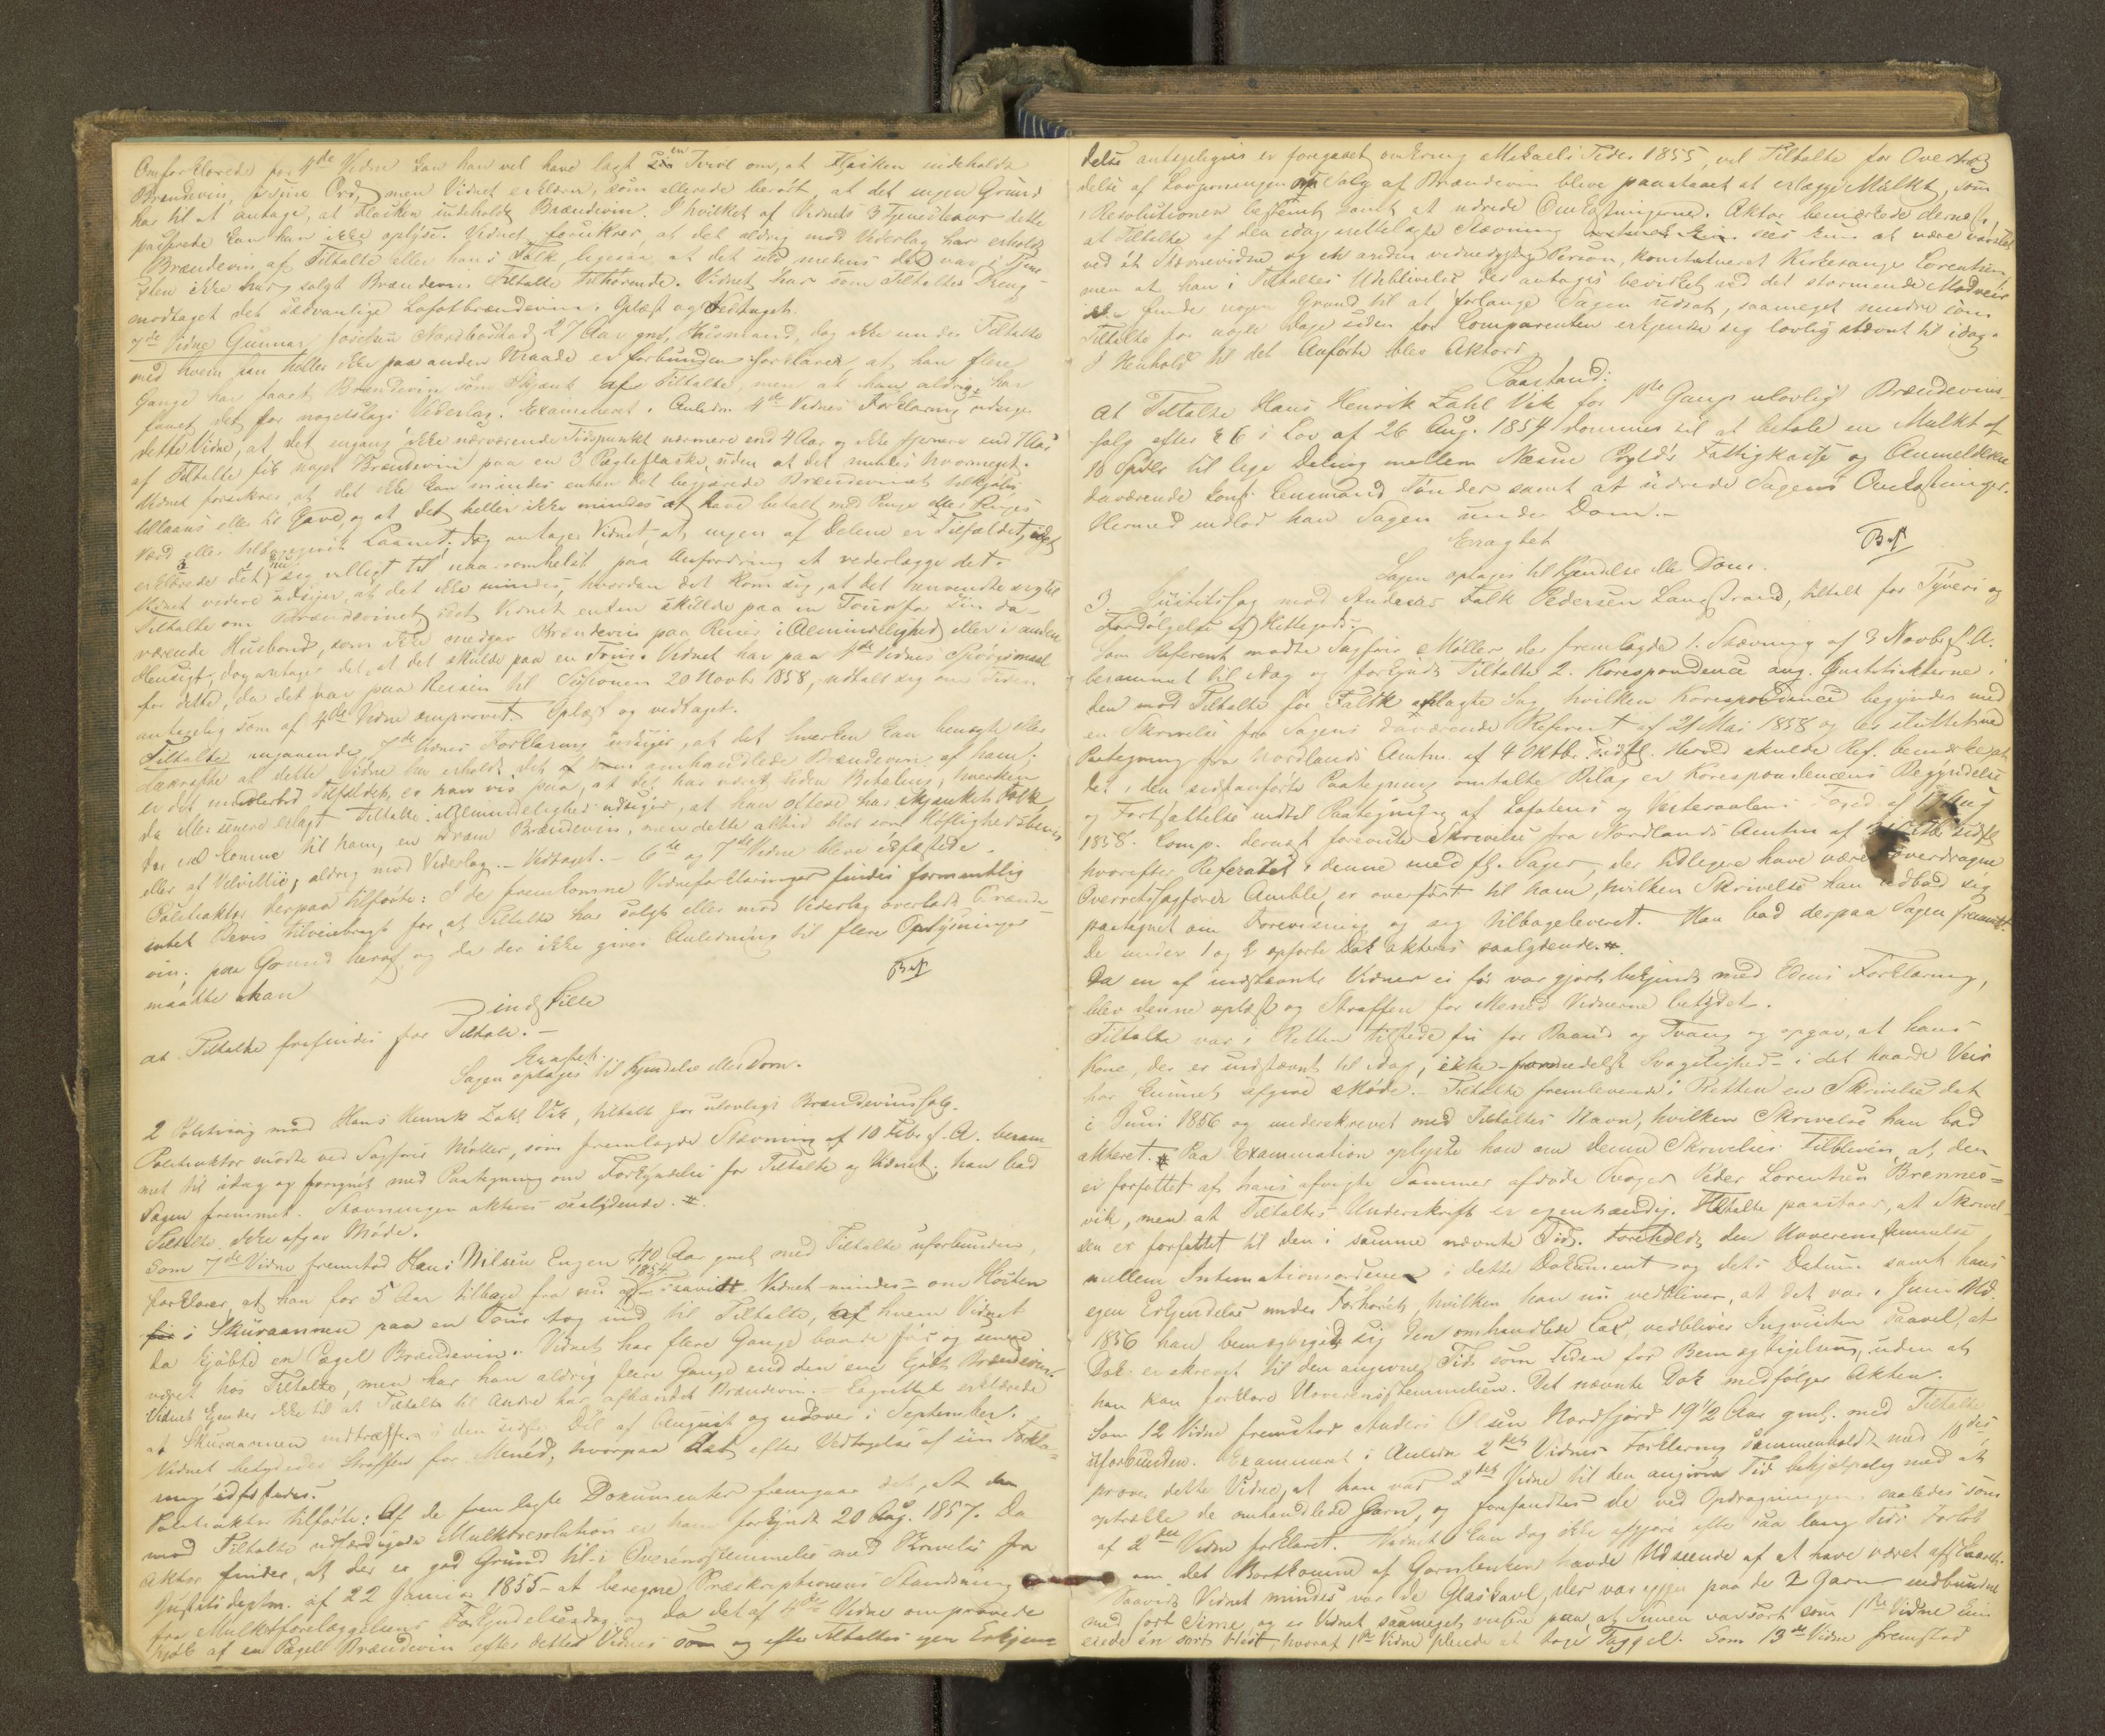 Omforklarede for 4de Vidne kan han vel have lagt en Tvivl om, at Flasken indeholdt
Brændevin, i sine Ord, men Vidnet erklærer, som allerede berørt, at det ingen Grund
har til at antage, at Flasken indeholdt Brændevin. I hvilket af Vidnets 3 Tjenesteaar dette
passerede kan han ikke oplyse. Vidnet forsikrer, at det aldrig mod Vederlag har erholdt
Brændevin af Tiltalte eller hans Folk, ligesaa at det selv medens det var i Tjene-
sten ikke har solgt Brændevin Tiltalte tilhørende. Vidnet har som Tiltaltes Dreng
modtaget det sædvanlige Lofotbrændevin. Oplæst og vedtaget.
7de Vidne Gunnar Josefsen Nordbostad 27 Aar gml, Huusmand, dog ikke under Tiltalte
med hvem han heller ikke paa anden Maade er forbunden forklarer, at han flere
Gange har faaet Brændevin som Skjænk af Tiltalte, men at han aldrig har
faaet det for nogetslags Vederlag. Examineret i Anledn. 4de Vidnes Forklaring udsiger
dette Vidne, at det engang ikke nærværende Tidspunkt nærmere end 4 Aar og ikke fjernere end 7 Aar
af Tiltalte fik noget Brændevin paa en 3 Pægleflaske, uden at det mindes hvormeget.
Vidnet forsikrer, at det ikke kan mindes enten det begjærede Brændevinet tilkjøbs
tillaans eller til Gave, og at det heller ikke mindes at have betalt med Penge eller Penges
Værd eller tilbagegivet Laanet. Dog antager Vidnet, at ingen af Delene er Tilfældet, idet
erklærede det nu sig villigt til naarsomhelst paa Anfordring at vederlægge det.
Vidnet videre udsiger, at det ikke mindes, hvordan det kom sig, at det henvendte sig til
Tiltalte om Brændevinet, idet Vidnet enten skulde paa en Tour fra sin da-
værende Husbond, som ikke medgav Brændevin paa Reiser i Almindelighed eller i anden
Hensigt, dog antager det, at det skulde paa en Tour. Vidnet har paa 4de Vidnes Spørgsmaal
for dette, da det var paa Reisen til Sessionen 20 Novbr 1858, udtalt sig om Tiden
antagelig som af 4de Vidne omprovet. Oplæst og vedtaget.
Tiltalte angaaende 7de Vidnes Forklaring udsiger, at det hverken kan benægte eller
bekræfte at dette Vidne har erholdt det omhandlede Brændevin af ham;
er det imidlertid Tilfældet, er han vis paa, at det har været uden Betaling, hverken
da eller senere erlagt. Tiltalte i Almindelighed udsiger, at han oftere har skjænket Folk,
der ere komne til ham, en Dram Brændevin, men dette altid blot som Høflighedsbevis
eller af Velvillie, aldrig mod Vederlag. – Vedtaget. – 6te og 7de Vidne bleve edfæstede.
Politiaktor herpaa tilførte: I de fremkomne Vidneforklaringer findes formentlig
intet Bevis tilveiebragt for, at Tiltalte har solgt eller mod Vederlag overladt Brænde-
vin; paa Grund heraf og da der ikke gives Anledning til flere Oplysninger
maatte han
indstille
at Tiltalte frafindes for Tiltale. –
Eragtet:
Sagen optages til Kjendelse eller Dom.
2 Politisag mod Hans Henrik Zahl Vik, tiltalt for ulovligt Brændevinssalg.
Politiaktor mødte ved Sagfører Møller, som fremlagde Stævning af 10 Febr. d. A. beram-
met til idag og forsynet med Paategning om Forkyndelse for Tiltalte og Vidnet; han bad
Sagen fremmet. Stævningen akteres saalydende. #.
Tiltalte ikke afgav Møde.
Som 7de Vidne fremstod Hans Nilsen Engen 40 Aar gml med Tiltalte uforbunden,
forklarer, at han for 5 Aar tilbage fra nu 1854 saavidt Vidnet mindes – om Høsten
i Skuraannen paa en Tour tog ind til Tiltalte, af hvem Vidnet
da kjøbte en Pægel Brændevin. Vidnet har flere Gange baade før og senere
været hos Tiltalte, men har han aldrig flere Gange end den ene kjøbt Brændevin.
Vidnet kjender ikke til at Tiltalte til Andre har afhændet Brændevin. – Lagrettet erklærede
at Skuraannen indtræffer i den sidste Del af August og udover i September.
Vidnet betydedes Straffen for Meened, hvorpaa det efter Vedtagelse af sin Forkla-
ring edfæstedes.
Politiaktor tilførte: Af de fremlagte Dokumenter fremgaar det, at den
mod Tiltalte udfærdigede Mulktresolution er ham forkyndt 20 Aug. 1857. Da
Aktor finder, at der er god Grund til – i Overensstemmelse med Skrivelse fra
Justitsdeptm. af 22 Januar 1855 – at beregne Præskriptionens Standsning
fra Mulktforelæggelsens Forkyndelsesdag og da det af 4de Vidne omprovede
Kjøb af en Pægel Brændevin efter dettes Vidnes som og efter Tiltaltes egen Erkjen-
delse antageligvis er foregaaet omkring Mikaeli Tider 1855, vil Tiltalte for Overtræ-
delse af Lovgivningen om Salg af Brændevin bleve paastaaet at erlægge Mulkt, som
i Resolutionen bestemt samt at udrede Omkostningerne. Aktor bemærkede dernæst,
at Tiltalte af den idag irettelagte Stævning sees kun at være varslet
ved et Stævnevidne og en anden vederhæftig Person, konstitueret Kirkesanger Lorentsen,
men at han i Tiltaltes Udeblivelse, der antages bevirket ved det stormende Modveir
ikke finder nogen Grund til at forlange Sagen udsat, saameget mindre som
Tiltalte for nogle Dage siden for Comparenten erkjendte sig lovlig stævnt til idag.
I Henhold til det Anførte blev Aktors
Paastand:
At Tiltalte Hans Henrik Zahl Vik for 1ste Gangs ulovligt Brændevins-
salg efter § 6 i Lov af 26 Aug. 1854 dømmes til at betale en Mulkt af
10 Spdlr til lige Deling mellem Næsne Prgld's Fattigkasse og Anmelderen
daværende konst. Lensmand Tønder samt at udrede Sagens Omkostninger.
Hermed indlod han Sagen under Dom. –
Eragtet
Sagen optages til Kjendelse eller Dom.
3. Justitssag mod Andreas Falk Pedersen Langstrand, tiltalt for Tyveri og
Fordølgelse af Hittegods.
Som Referent mødte Sagfører Møller der fremlagde 1. Stævning af 3 Novbr f. A.
berammet til idag og forkyndt Tiltalte 2. Korespondence ang. Justitsakterne i
den mod Tiltalte for Falsk anlagte Sag, hvilken Korespondence begynder med
en Skrivelse fra Sagens daværende Referent af 21 Mai 1858 og er sluttet med
Paategning fra Nordlands Amtm. af 4 Oktbr sidstl. Herved skulde Ref. bemærke, at
det i den sidstanførte Paategning omtalte Bilag er Korespondencens Begyndelse
og Fortsættelse indtil Paategning af Lofotens og Vesteraalens Foged af Aug
1858. Comp. dernæst foreviste Skrivelse fra Nordlands Amtm af sidstl
hvorefter Referatet i denne med fl. Sager, der tidligere have været overdragne
Overretssagfører Amble, er overført til ham, hvilken Skrivelse han udbad sig
paategnet om Forevisning og sig tilbageleveret. Han bad derpaa Sagen fremmet.
De under 1 og 2 opførte Dok akteres saalydende. #.
Da en af indstævnte Vidner ei før var gjort bekjendt med Edens Forklaring,
blev denne oplæst og Straffen for Meened Vidnerne betydet.
Tiltalte var i Retten tilstede fri for Baand og Tvang og opgav, at hans
Kone, der er indstævnt til idag, ikke formedelst Svagelighed i det haarde Veir
har kunnet afgive Møde. Tiltalte fremleverede i Retten en Skrivelse dat
i Juni 1856 og underskrevet med Tiltaltes Navn, hvilken Skrivelse han bad
akteret. # Paa Examination oplyste han om denne Skrivelses Tilbliven, at den
er forfattet af hans afvigte Sommer afdøde Svoger Peder Lorentsen Brennes-
vik, men at Tiltaltes Underskrift er egenhændig. Tiltalte paastaar, at Skrivel-
sen er forfattet til den i samme nævnte Tid. Foreholdt den Uoverensstemmelse
mellem Intimationsordenen i dette Dokument og dets Datum samt hans
egen Erkjendelse under Forhøret, hvilken han nu vedbliver, at det var i Juni Md.
1856 han bemægtigede sig den omhandlede Lax, vedbliver Inqvisiten saavel, at
Dok. er skrevet til den angivne Tid som Tiden for Bemægtigelsen, uden at
han kan forklare Uoverensstemmelsen. Det nævnte Dok medfølger Akten.
Som 12 Vidne fremstod Anders Olsen Nordfjord 19 1/2 Aar gml. med Tiltalte
uforbunden. Examineret i Anledn 2det Vidnes Forklaring sammenholdt med 10des,
prover dette Vidne, at han var 2det Vidne til den angivne Tid behjælpelig med at
optrække de omhandlede Garn, og forefandtes de ved Opdragningen saaledes som
af 2det Vidne forklaret. Vidnet kan dog ikke afgjøre efter saa lang Tids Forløb
om det Bortkomne af Garnlenken havde Udseende af at have været afskaaret.
Saavidt Vidnet mindes var de Glaskavl, der var igjen paa de 2 Garn indbundne
med sort Sime, og er Vidnet saameget vissere paa at Simen var sort som 1ste Vidne kun
eiede en sort Hest, hvoraf 1ste Vidne pleiede at tage Taggel. Som 13de Vidne fremstod